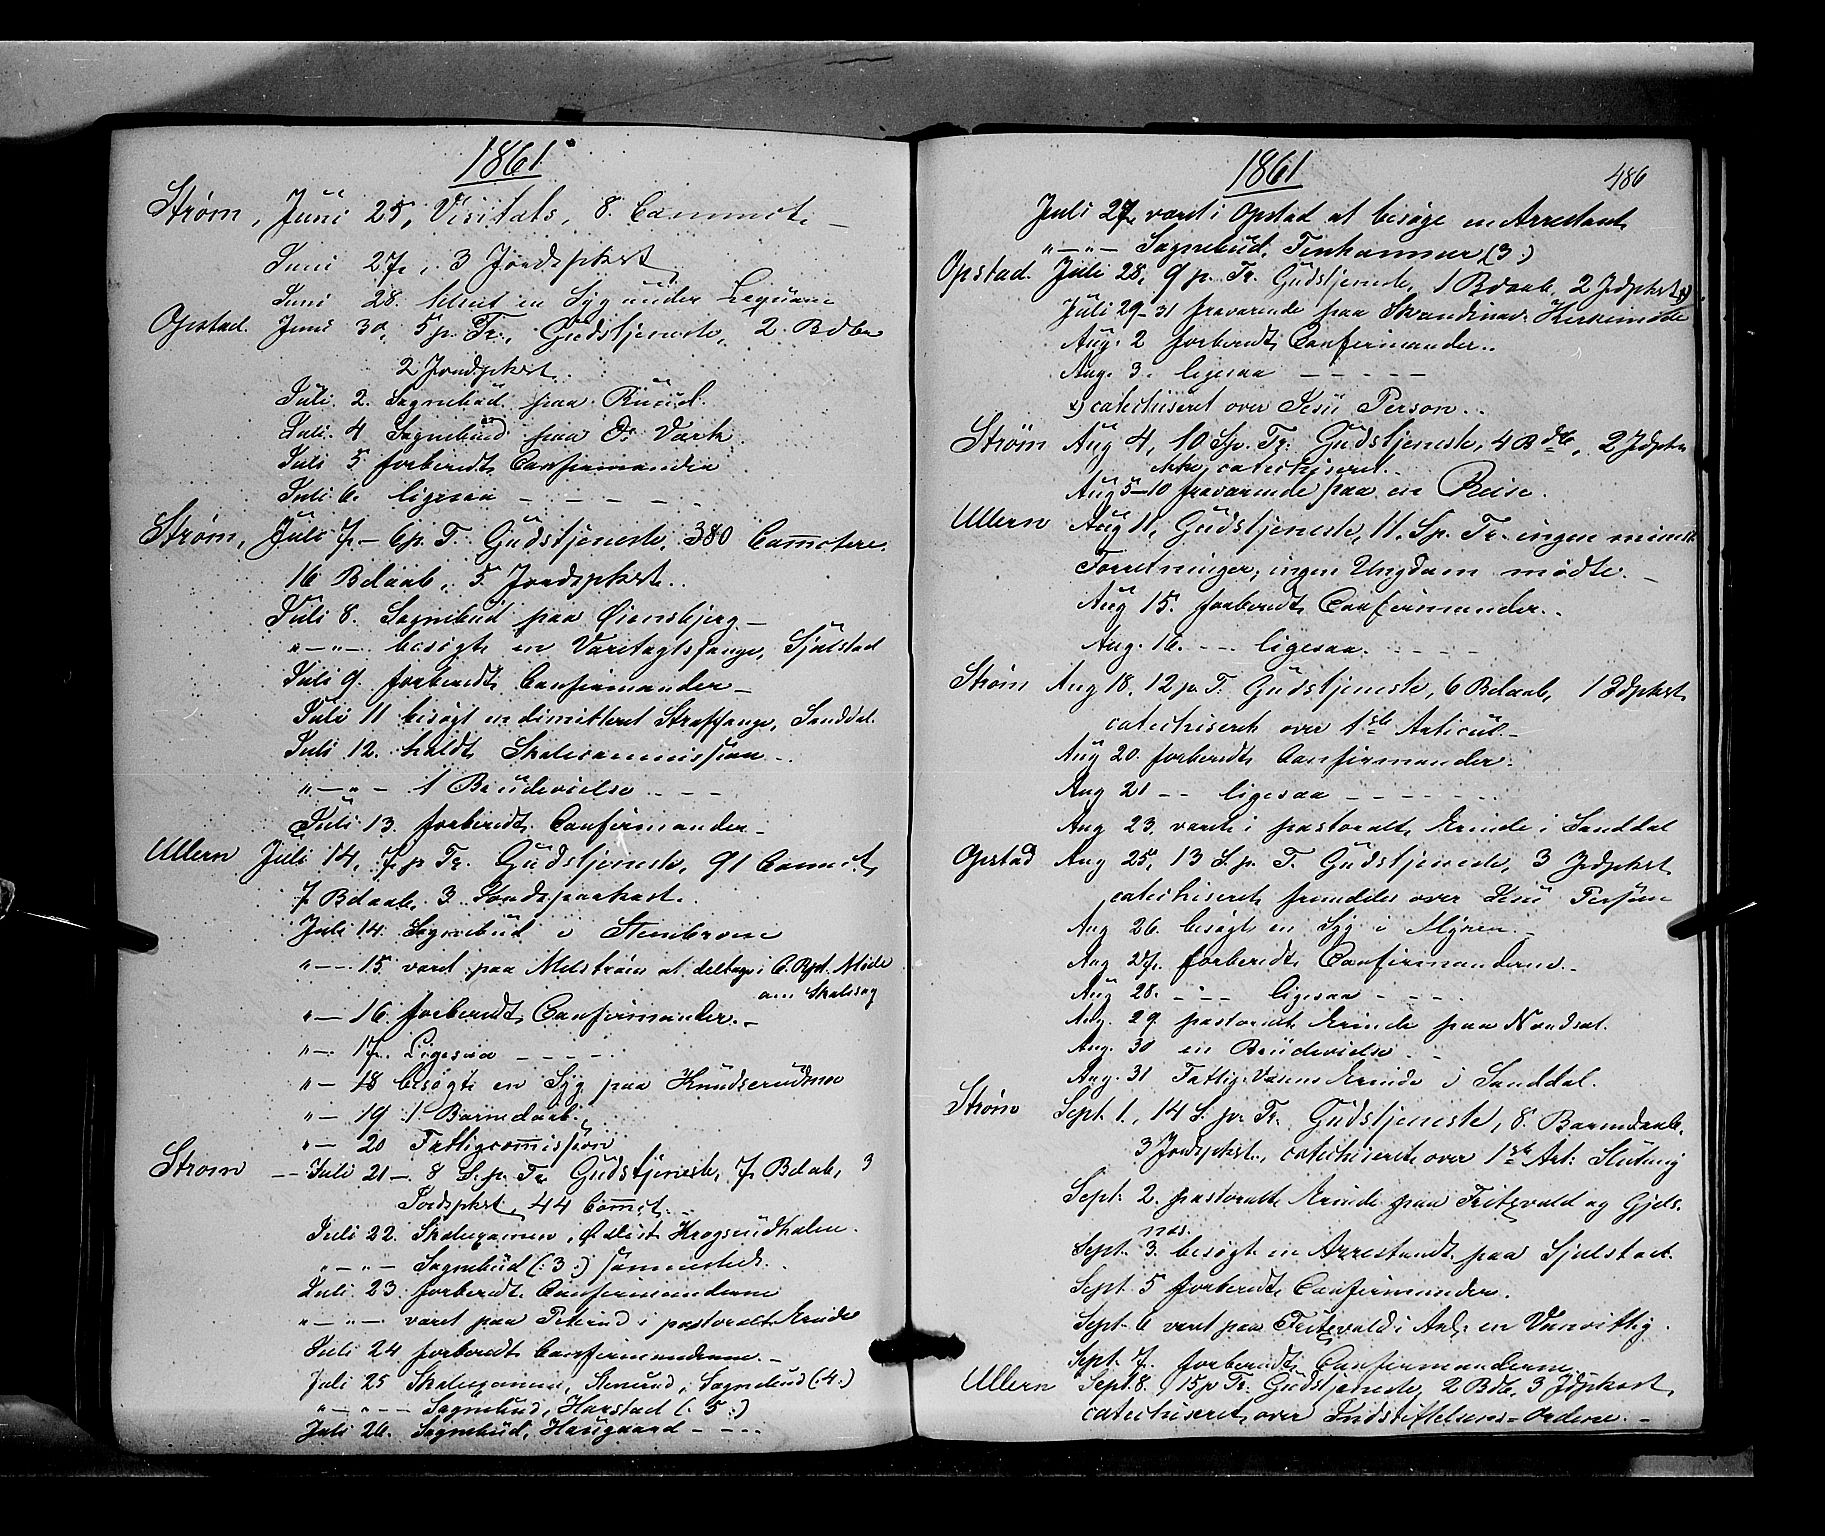 1861
Strøm, Juni 25, Visitats, 8. Communt. –
Juni 27, 3 Jordspkst
Juni 28. en Syg under
Opstad. Juni 30, 5 p. Tr., Gudstjeneste, 2. Bdbe
2 Jordpkst.
Juli. 2. Sognebud paa Ruud.
Juli. 4 Sognebud paa Os Værk
Juli 5 forberedt Confirmandre
Juli 6. ligesaa – – – – –
Strøm, Juli 7 – 6 p. T. Gudstjeneste, 380 Com̅ctere.
16 Bdaab, 5 Jordspkst.
Juli 8. Sognebud paa Øiensbjerg –
" – " – besøgt en Varetægtsfange, Sjulstad
Juli 9. forberedt Confirmander –
Juli 11 besøgt en dimitteret Straffange, Sanddal.
Juli 12. holdt Skolecommission –
" – " – 1 Brudevielse – – –
Juli 13. forberedt Confirmander –
Ullern Juli 14, 7 p Tr. Gudstjeneste, 91 Commct.
7 Bdaab, 3 Jordspaakast.
Juli 14. Sognebud i
" – 15 været paa Melstrøm at deltage i C. Rpst. Møde
om Skolesag
" – 16. forberedt Confirmander. –
" – 17. Ligesaa – – – –
" – 18 besøgt en Syg paa Knudserudmoe
" – 19 1 Barnedaab.
" – 20 Fattigcom̅ission
Strøm – Juli 21 – 8 S. p. Tr Gudstjeneste, 7 Bdaab, 3
Jordspkst, 44 Com̅ct. –
Juli 22. Skoleexamen, Krogsrudholen.
" – " – Sognebud (: 3 :) sammesteds.
Juli 23 forberedt Confirmanderne
" – " – været paa i pastoralt Erinde
Juli 24 forberedt Confirmanderne. –
Juli 25 Skoleexamen, Stenrud, Sognebud (4:)
" – " – Sognebud, Harstad (: 5 :)
Juli 26. Sognebud, Haugaard – – – –
1861
486
Juli 27, været i Opstad at besøge en Arrestant
" – " – Sognebud, (3:)
Opstad. Juli 28, 9 p. Tr. Gudstjeneste, 1 Bdaab, 2 Jdpkst x)
Juli 29–31 fraværende paa Skandinav. Kirkemøde
Aug. 2 forberedt Confirmander.
Aug. 3. ligesaa – – – – –
x) catechiseret over Jesu Person.
Strøm Aug 4, 10 S. p. Tr. Gudstjeneste, 4 Bdb, 2 Jdpkst
ikke catechiseret.
Aug 5–10 fraværende paa en Reise.
Ullern Aug 11, Gudstjeneste, 11. S p. Tr. ingen minist
Forretninger, ingen Ungdom mødte. –
Aug 15. forberedt Confirmander.
Aug. 16. – – ligesaa. – – – – –
Strøm Aug 18, 12 p. T. Gudstjeneste, 6 Bdaab, 1 Jdpkst,
catechiseret over 1ste Articul –
Aug 20. forberedt Confirmander.
Aug 21 – – ligesaa – – – – – –
Aug 23. været i pastoralt Erinde i Sanddal
Opstad Aug 25, 13 S. p. T. Gudstjeneste, 3 Jdpkst
catechiseret fremdeles over Jesu Person
Aug 26. besøgt en Syg i Myren. –
Aug 27. forberedt Confirmanderne. –
Aug 28. – – – ligesaa – – – –
Aug. 29 pastoralt Erinde paa Nordset.
Aug. 30 en Brudevielse – –
Aug. 31 Fattig-Væsens Erinde i Sanddal.
Strøm Sept. 1, 14 S. p. Tr. Gudstjeneste, 8. Barnedaab,
3 Jordspkst, catechiseret over 1ste Art. Slutning
Sept. 2. pastoralt Erinde paa Fritzvold og Gjels-
næs.
Sept. 3. besøgt en Arrestandt paa Sjulstad.
Sept. 5 forberedt Confirmander.
Sept. 6 været paa Fritzvold i Anl. en Vanvittig.
Sept. 7. forberedt Confirmanderne
Ullern Sept. 8. 15 p Tr. Gudstjeneste, 2 Bdb, 3 Jdpkast,
catechiseret over Indstiftelsens-Ordene. –